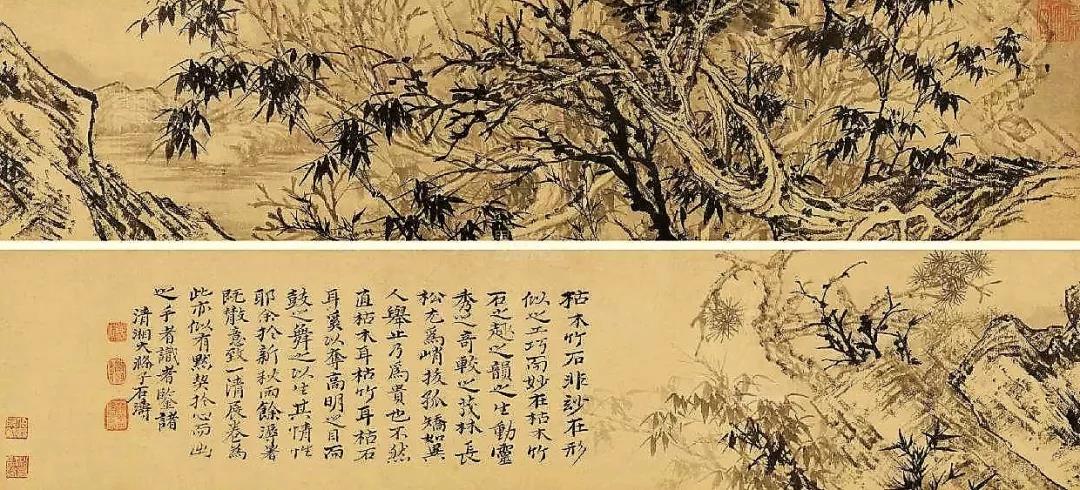 枯木竹石非玅在形
似之工巧而妙在枯木竹
石之趣之韻之生動靈
秀之奇較之茂林長
松尤爲峭拔孤矯如異
人舉止乃爲貴也不然
直枯木耳枯竹耳枯石
耳奚以奪高明之目而
鼓之舞之以生其情性
耶余於新秋雨餘溽暑
既散意致一清展卷爲
此亦似有默契於心而出
之手者識者鑒諸
清湘大滌子石濤